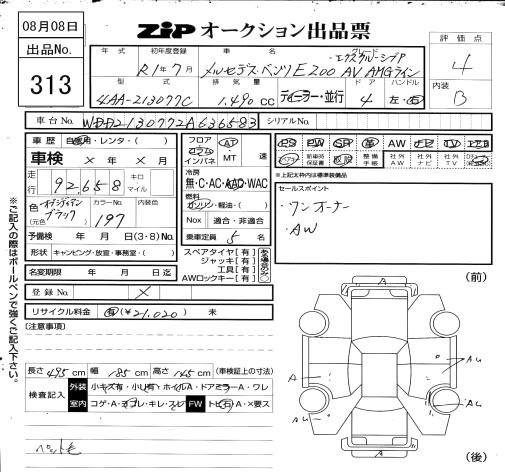 08月08日
ZIP オークション出品票
出品No.
313
評価点
4
内装
B
年式 初年度登録 車名 グレード
R1年7月 メルセデス・ベンツ E200 エクスクルーシブ AV AMGライン
型式 排気量 ドア ハンドル
4AA-213077C 1.490cc ディーラー・並行 4 左・右
車台No.
シリアルNo.
車歴 自家用・レンタ・( )
車検 × 年 × 月
走行 92,658 キロ マイル
色 オブシディアンブラック (元色)
カラーNo. 197
内装色
予備検 年 月 日(3・8)No.
形状 キャンピング・放宣・事務室・( )
名変期限 年 月 日迄
フロア コラム インパネ AT・MT 速
冷房 無・C・AC・AAC・WAC
燃料 ガソリン・軽油・( )
Nox 適合・非適合
乗車定員 5 名
スペアタイヤ[有]
ジャッキ[有]
工具[有]
AWロックキー[有]
ある場合のみ○
PS PW SR 革 AW ナビ TV エアB
新車時保証書 取説 整備手帳 社外AW 社外ナビ 社外TV
※上記太枠内は標準装備品
セールスポイント
・ワンオーナー
・AW
登録No. ×
リサイクル料金 有(¥21,020) 未
[注意事項]
長さ 495 cm 幅 185 cm 高さ 145 cm (車検証上の寸法)
検査記入
外装 小キズ有・小凹有・ホイルA・ドアミラーA・ワレ
室内 コゲ・A・ヨゴレ・キレ・スレ FW トビ石・A・×要ス
ペット毛
※ご記入の際はボールペンで強くご記入下さい。
(前)
A
A
AU
A
AU
A
A
(後)